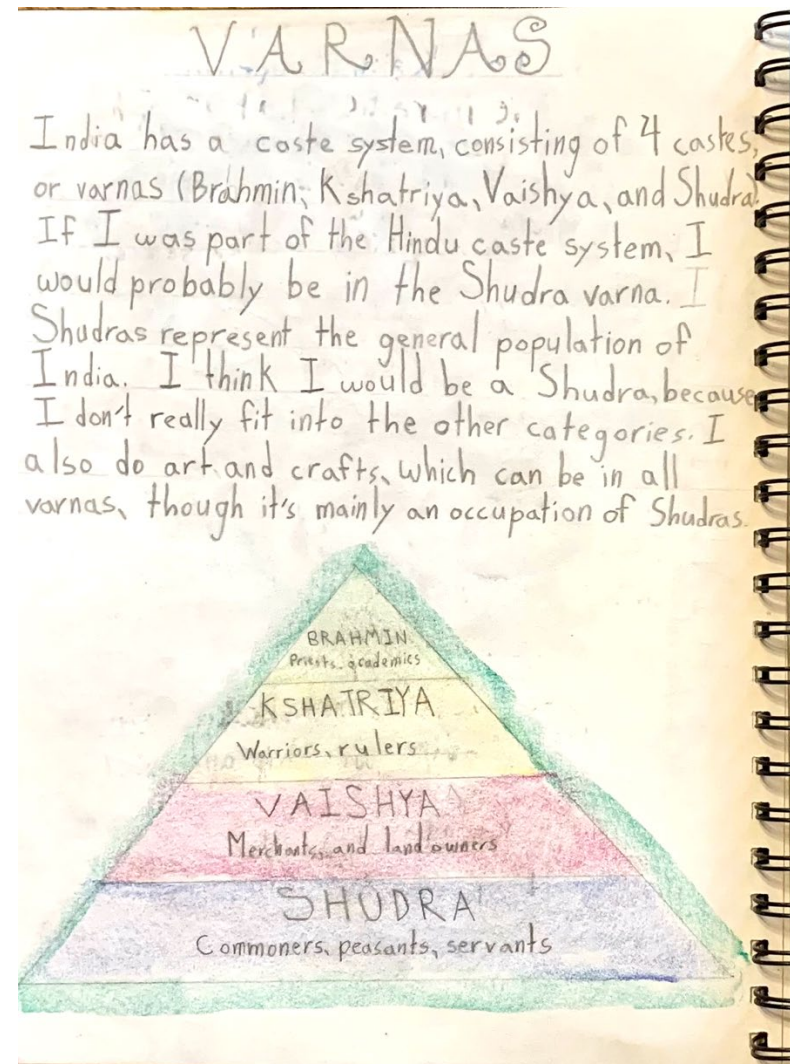 VARNAS
India has a caste system, consisting of 4 castes,
or varnas (Brahmin, Kshatriya, Vaishya, and Shudra).
If I was part of the Hindu caste system, I
would probably be in the Shudra varna. I
Shudras represent the general population of
India. I think I would be a Shudra, because
I don't really fit into the other categories. I
also do art and crafts, which can be in all
varnas, though it's mainly an occupation of Shudras.
BRAHMIN
Priests, academics
KSHATRIYA
Warriors, rulers
VAISHYA
Merchants, and landowners
SHUDRA
Commoners, peasants, servants